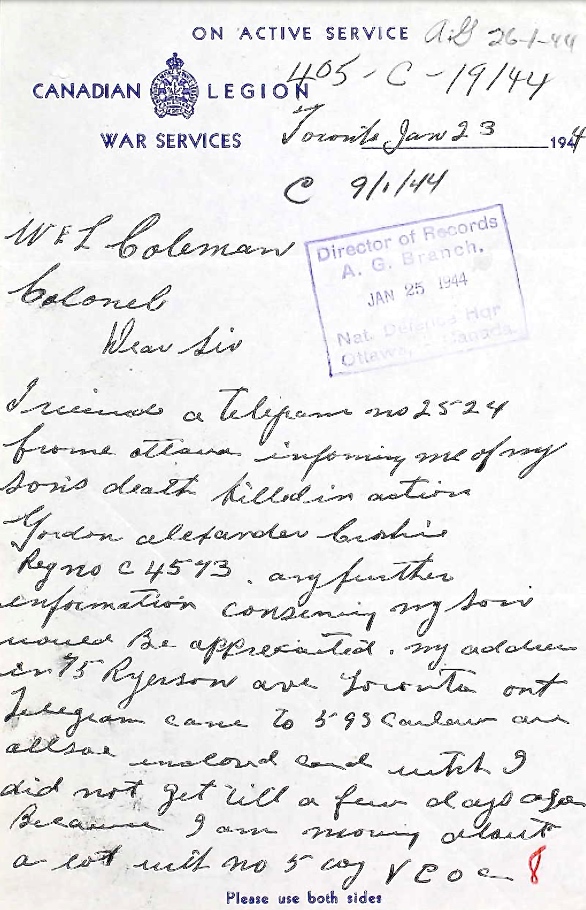 ON ACTIVE SERVICE AG 26-1-44
405-C-19/44
CANADIAN LEGION
WAR SERVICES
Toronto Jan 23 1944
C 9/1/44
W E L Coleman
Colonel
Dear Sir
Director of Records
A. G. Branch,
JAN 25 1944
Nat. Defence Hqr
Ottawa, Canada
I recieved a telegram no 2524
frome ottawa infoming me of my
sons death killed in action
Gordon alexander
Reg no C 4593. any further
enformation conserning my son
would Be appreciated. my address
is 75 Ryerson ave Toronto ont
Telegram came to 593 Carlaw ave
allsoe inclosed card witch I
did not get till a few days ago
Because I am moving about
a lot with no 5 coy V G o C 8
Please use both sides